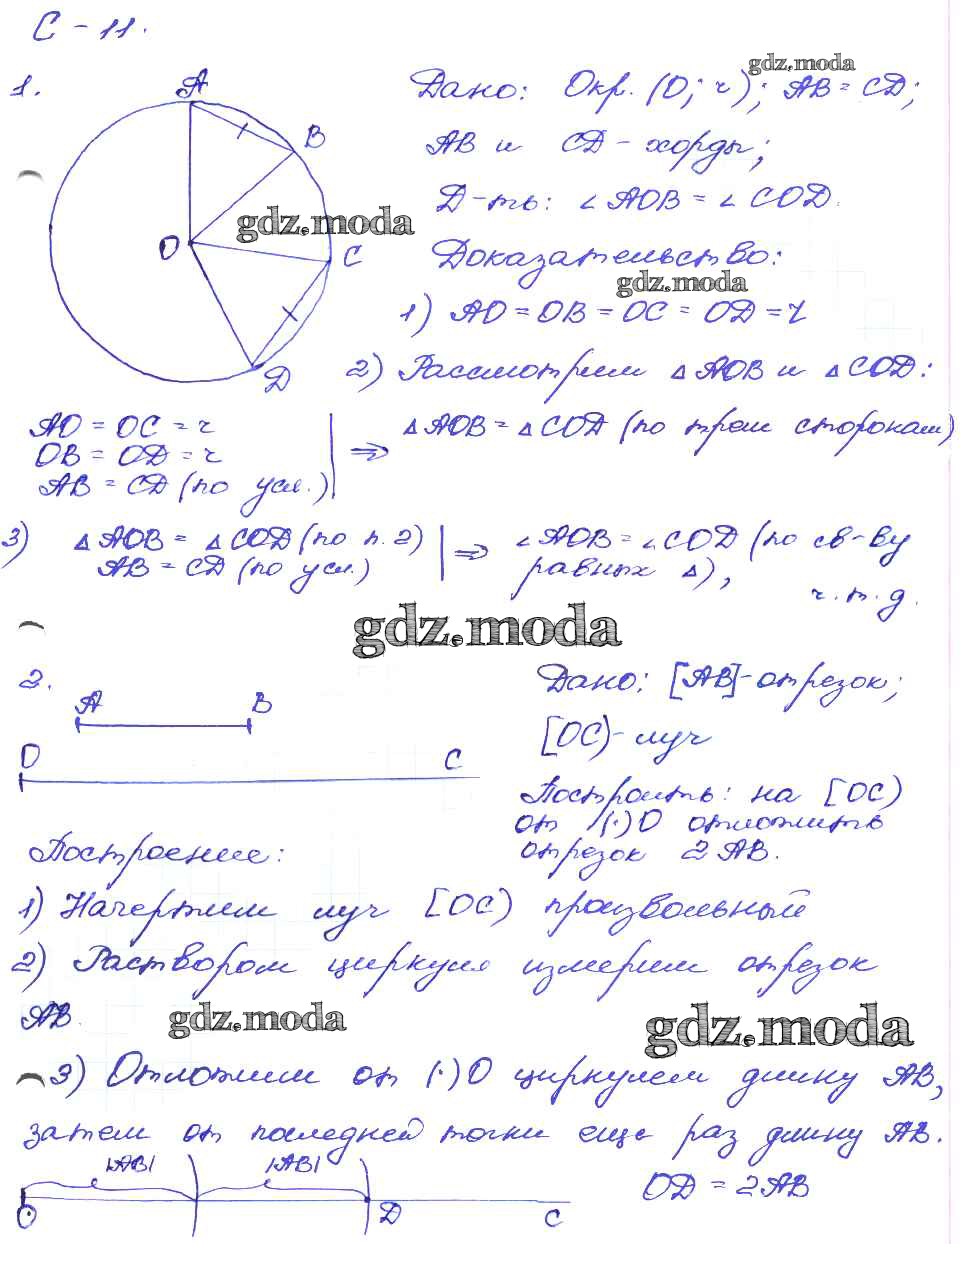 С - 11.
gdz.moda
1.
A
B
O
C
D
gdz.moda
Дано: Окр. (O; r); AB = CD;
AB и CD - хорды;
Д-ть: ∠AOB = ∠COD.
Доказательство:
gdz.moda
1) AO = OB = OC = OD = r
2) Рассмотрим △AOB и △COD:
AO = OC = r
OB = OD = r
AB = CD (по усл.)
⇒ △AOB = △COD (по трем сторонам)
3) △AOB = △COD (по п. 2)
AB = CD (по усл.)
⇒ ∠AOB = ∠COD (по св-ву
равных △),
ч. т. д.
gdz.moda
2.
A B
O C
Дано: [AB] - отрезок;
[OC) - луч
Построить: на [OC)
от (·) O отложить
отрезок 2 AB.
Построение:
1) Начертим луч [OC) произвольный
2) Раствором циркуля измерим отрезок
AB.
gdz.moda
gdz.moda
3) Отложим от (·) O циркулем длину AB,
затем от последней точки еще раз длину AB.
|AB| |AB|
O D C
OD = 2AB